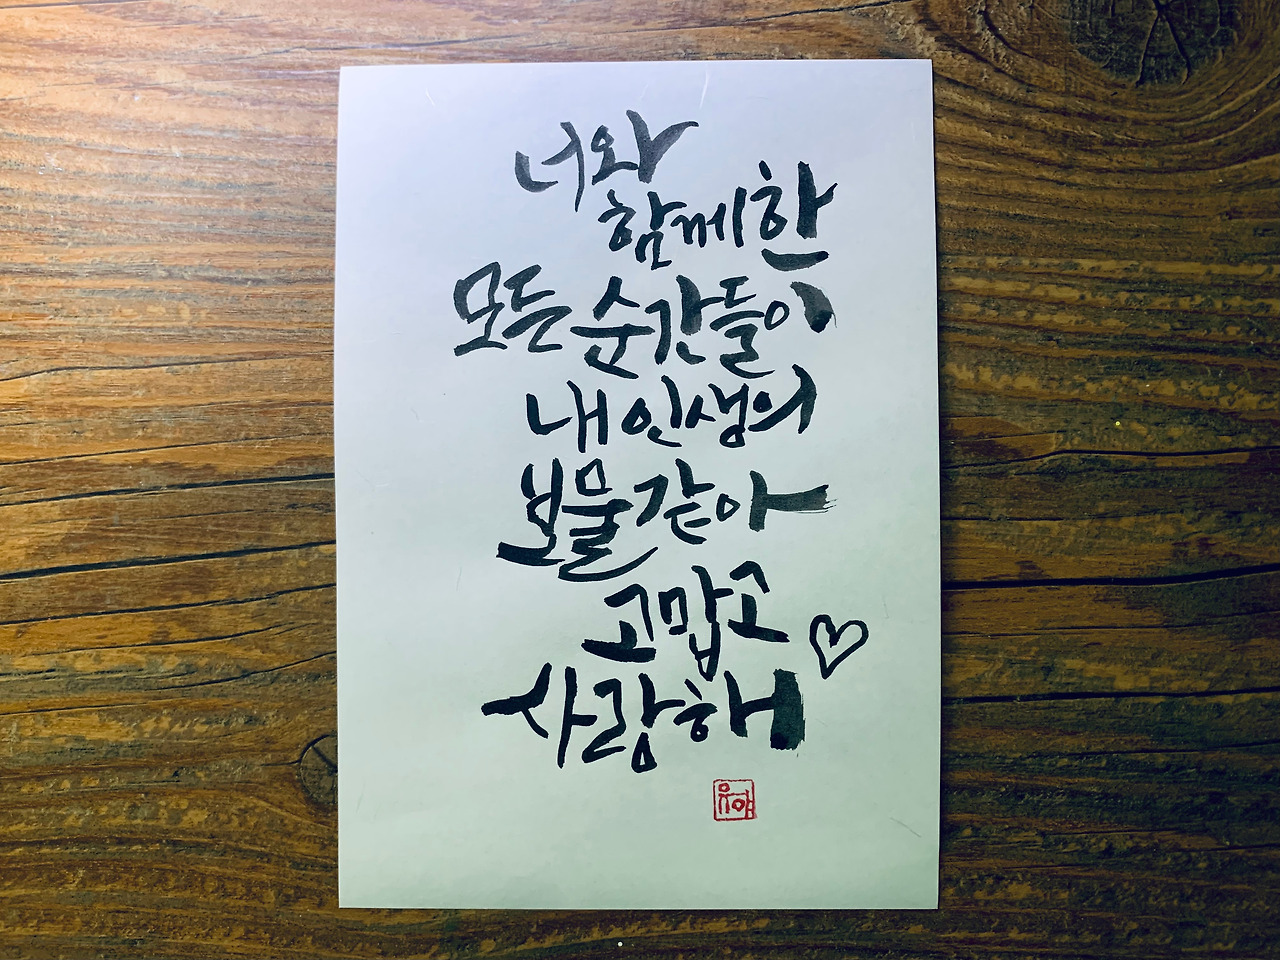 너와
함께한
모든 순간들이
내 인생의
보물 같아
고맙고
사랑해
유야